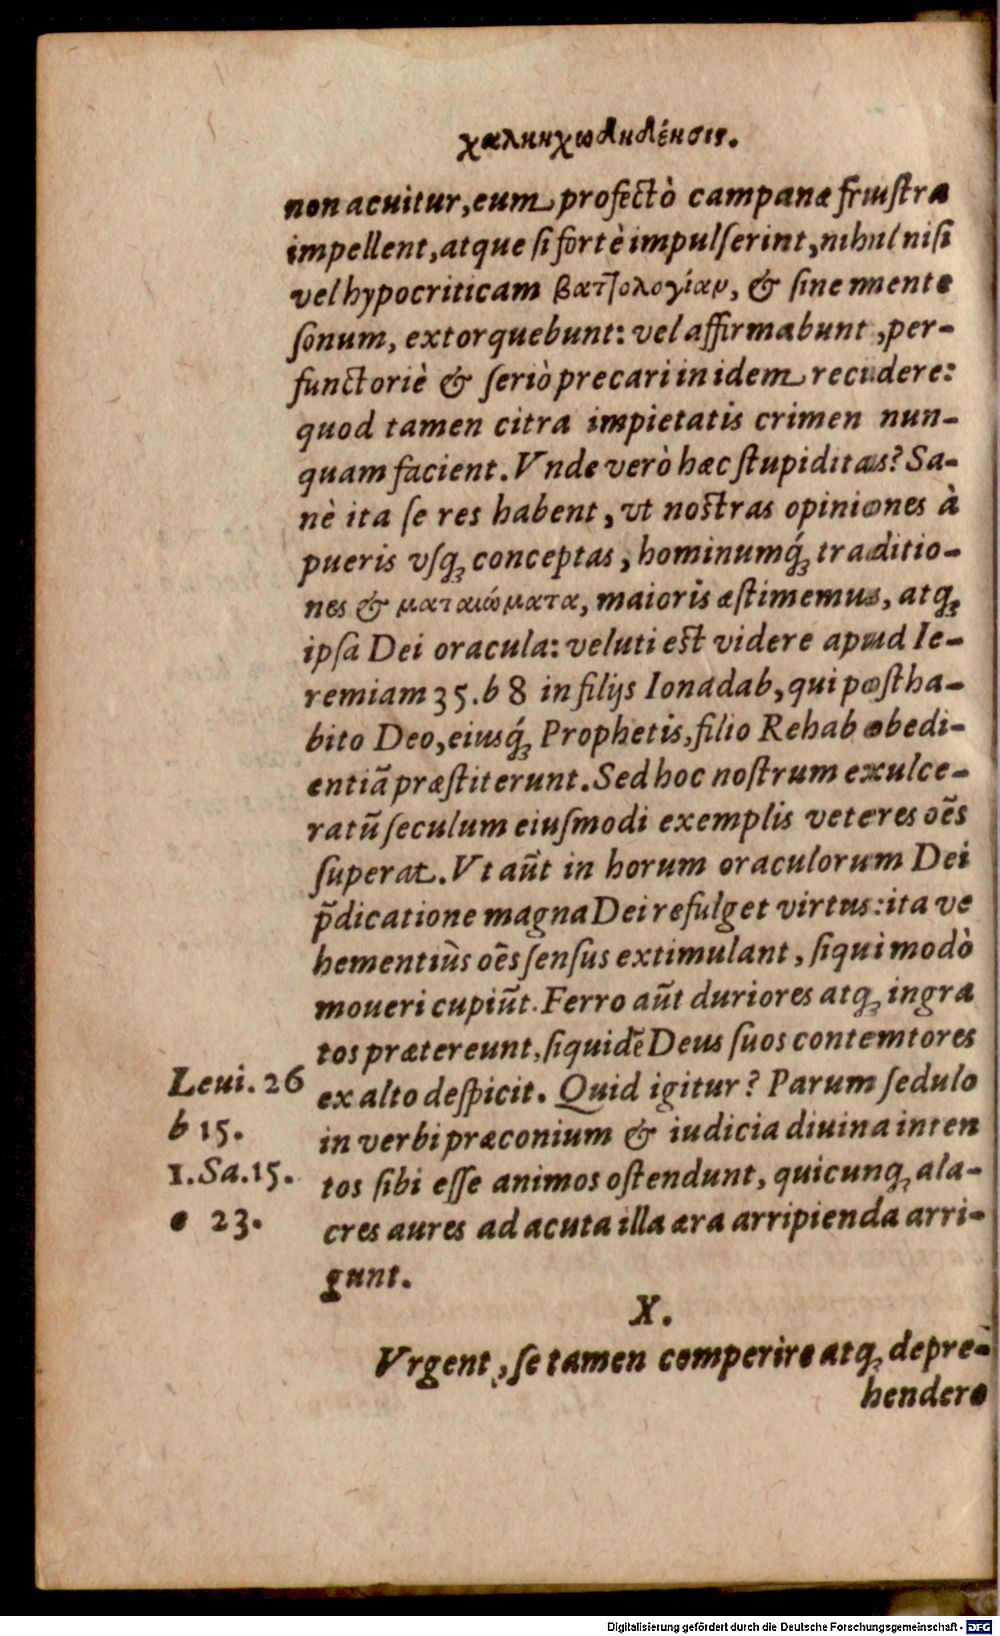 χαλκηχωδηδέησις.
non acuitur, eum profectò campanæ frustra
impellent, atque si fortè impulserint, nihil nisi
vel hypocriticam βατ]ολογίαν, & sine mente
sonum, extorquebunt: vel affirmabunt, per-
functoriè & seriò precari in idem recidere:
quod tamen citra impietatis crimen nun-
quam facient. Vnde verò hæc stupiditas? Sa-
nè ita se res habent, vt nostras opiniones à
pueris vsq; conceptas, hominumq́; traditio-
nes & ματαιώματα, maioris æstimemus, atq;
ipsa Dei oracula: veluti est videre apud Ie-
remiam 35. b 8 in filijs Ionadab, qui postha-
bito Deo, eiusq́; Prophetis, filio Rehab obedi-
entiā præstiterunt. Sed hoc nostrum exulce-
ratū seculum eiusmodi exemplis veteres oēs
superat. Vt aūt in horum oraculorum Dei
p̄dicatione magna Dei refulget virtus: ita ve
hementiùs oēs sensus extimulant, siqui modò
moueri cupiūt. Ferro aūt duriores atq; ingra
tos prætereunt, siquidē Deus suos contemtores
ex alto despicit. Quid igitur? Parum sedulo
in verbi præconium & iudicia diuina inten
tos sibi esse animos ostendunt, quicunq; ala-
cres aures ad acuta illa æra arripienda arri-
gunt.
Leui. 26
b 15.
1. Sa. 15.
e 23.
X.
Vrgent, se tamen comperire atq; depre-
hendere
Digitalisierung gefördert durch die Deutsche Forschungsgemeinschaft - DFG